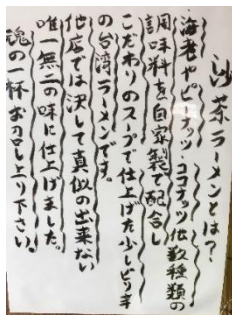 沙茶ラーメンとは?
海老やピーナッツ・ココナッツ他数種類の
調味料を自家製で配合し
こだわりのスープで仕上げた少しピリ辛
の台湾ラーメンです。
他店では決して真似の出来ない
唯一無二の味に仕上げました。
魂の一杯お召し上り下さい。